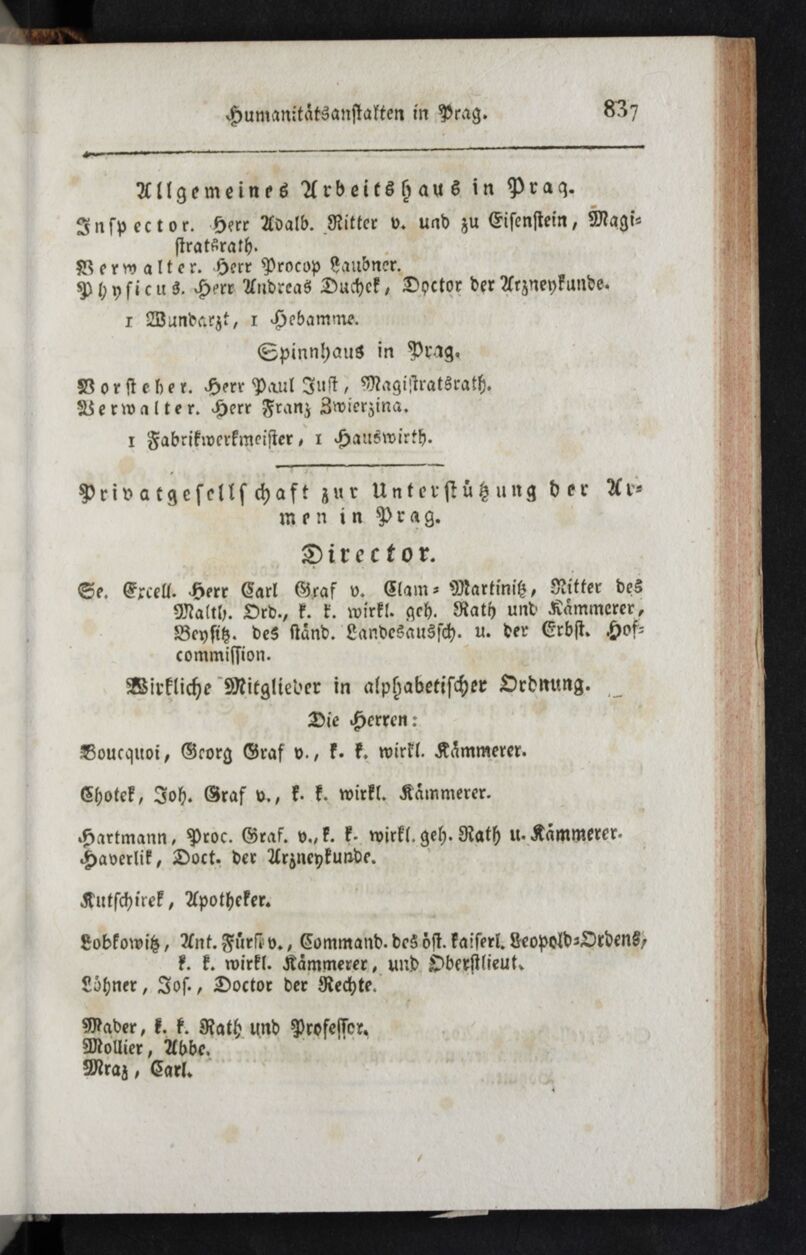 Humanitätsanstalten in Prag. 837
Allgemeines Arbeitshaus in Prag.
Inspector. Herr Adalb. Ritter v. und zu Eisenstein, Magi=
stratsrath.
Verwalter. Herr Procop Laubner.
Physicus. Herr Andreas Duchek, Doctor der Arzneykunde.
1 Wundarzt, 1 Hebamme.
Spinnhaus in Prag.
Vorsteher. Herr Paul Just, Magistratsrath.
Verwalter. Herr Franz Zwierzina.
1 Fabrikwerkmeister, 1 Hauswirth.
Privatgesellschaft zur Unterstützung der Ar=
men in Prag.
Director.
Se. Excell. Herr Carl Graf v. Clam=Martinitz, Ritter des
Malth. Ord., k. k. wirkl. geh. Rath und Kämmerer,
Beysitz. des ständ. Landesaussch. u. der Erbst. Hof=
commission.
Wirkliche Mitglieder in alphabetischer Ordnung.
Die Herren:
Boucquoi, Georg Graf v., k. k. wirkl. Kämmerer.
Chotek, Joh. Graf v., k. k. wirkl. Kämmerer.
Hartmann, Proc. Graf. v., k. k. wirkl. geh. Rath u. Kämmerer.
Haverlik, Doct. der Arzneykunde.
Kutschirek, Apotheker.
Lobkowitz, Ant. Fürst v., Command. des öst. kaiserl. Leopold=Ordens,
k. k. wirkl. Kämmerer, und Oberstlieut.
Löhner, Jos., Doctor der Rechte.
Mader, k. k. Rath und Professor.
Mollier, Abbe.
Mraz, Carl.